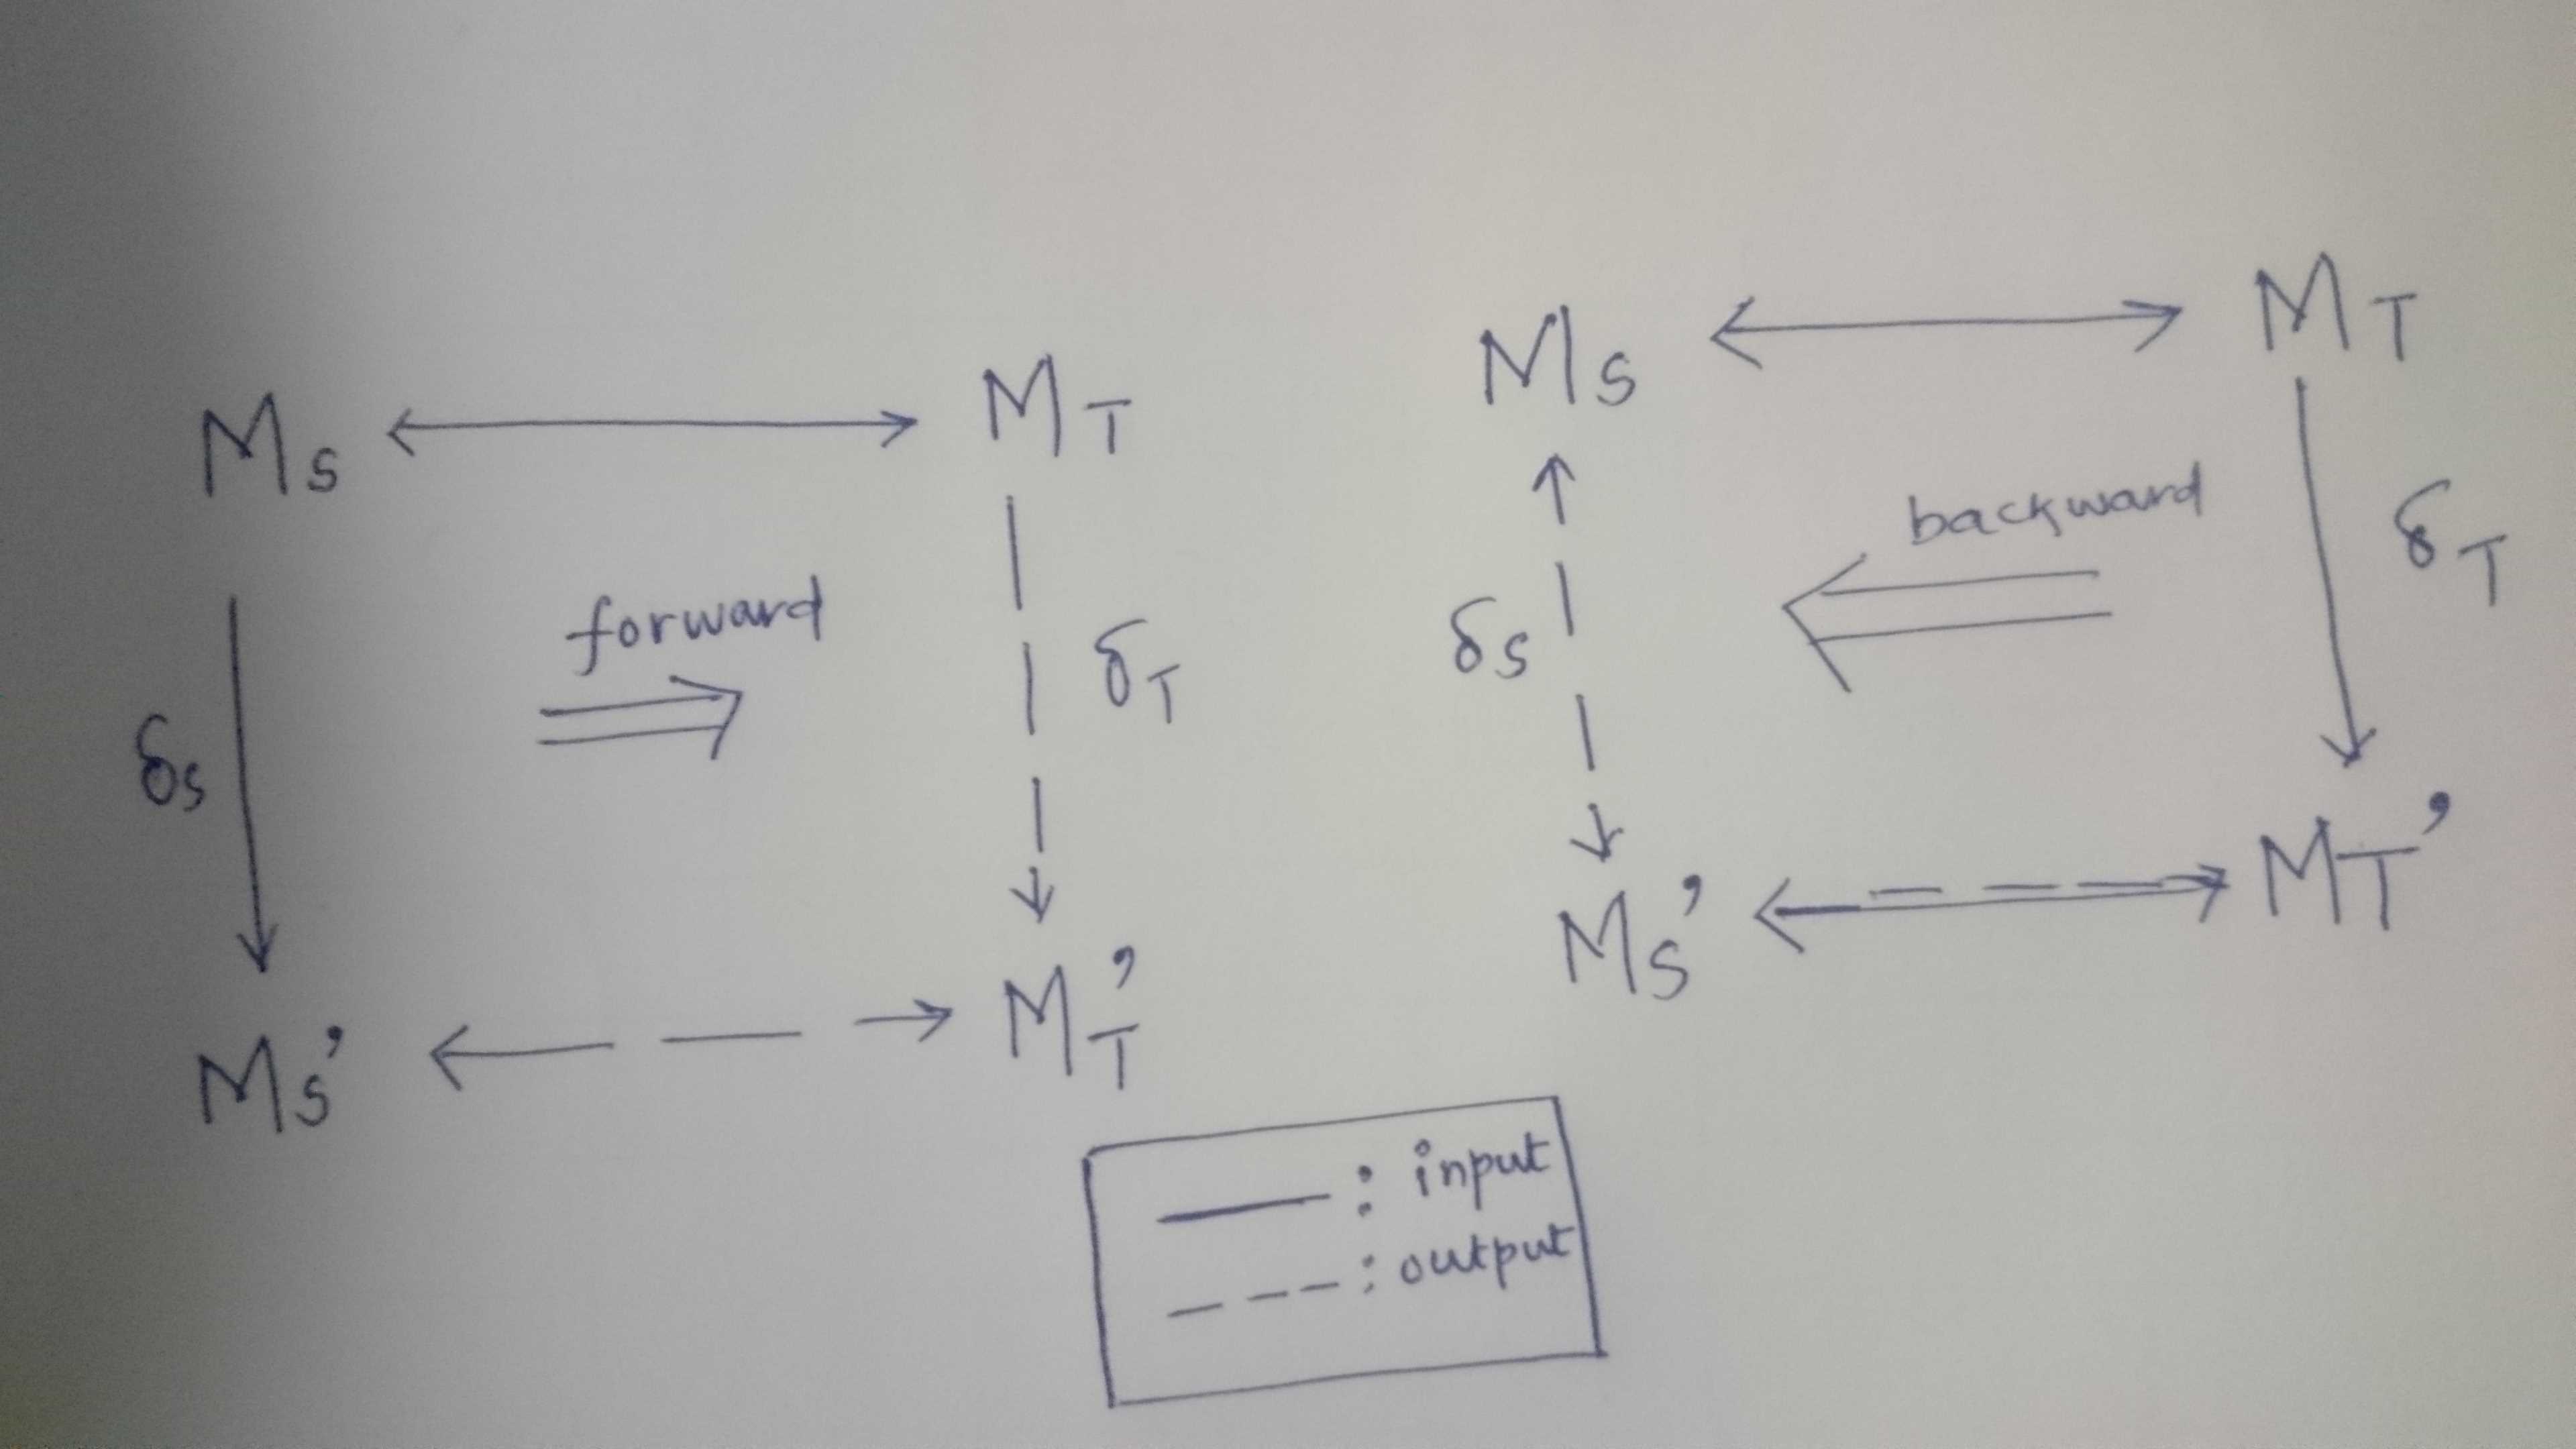 M_S M_T
forward
δ_S δ_T
M_S' M_T'
M_S M_T
backward
δ_S δ_T
M_S' M_T'
: input
: output